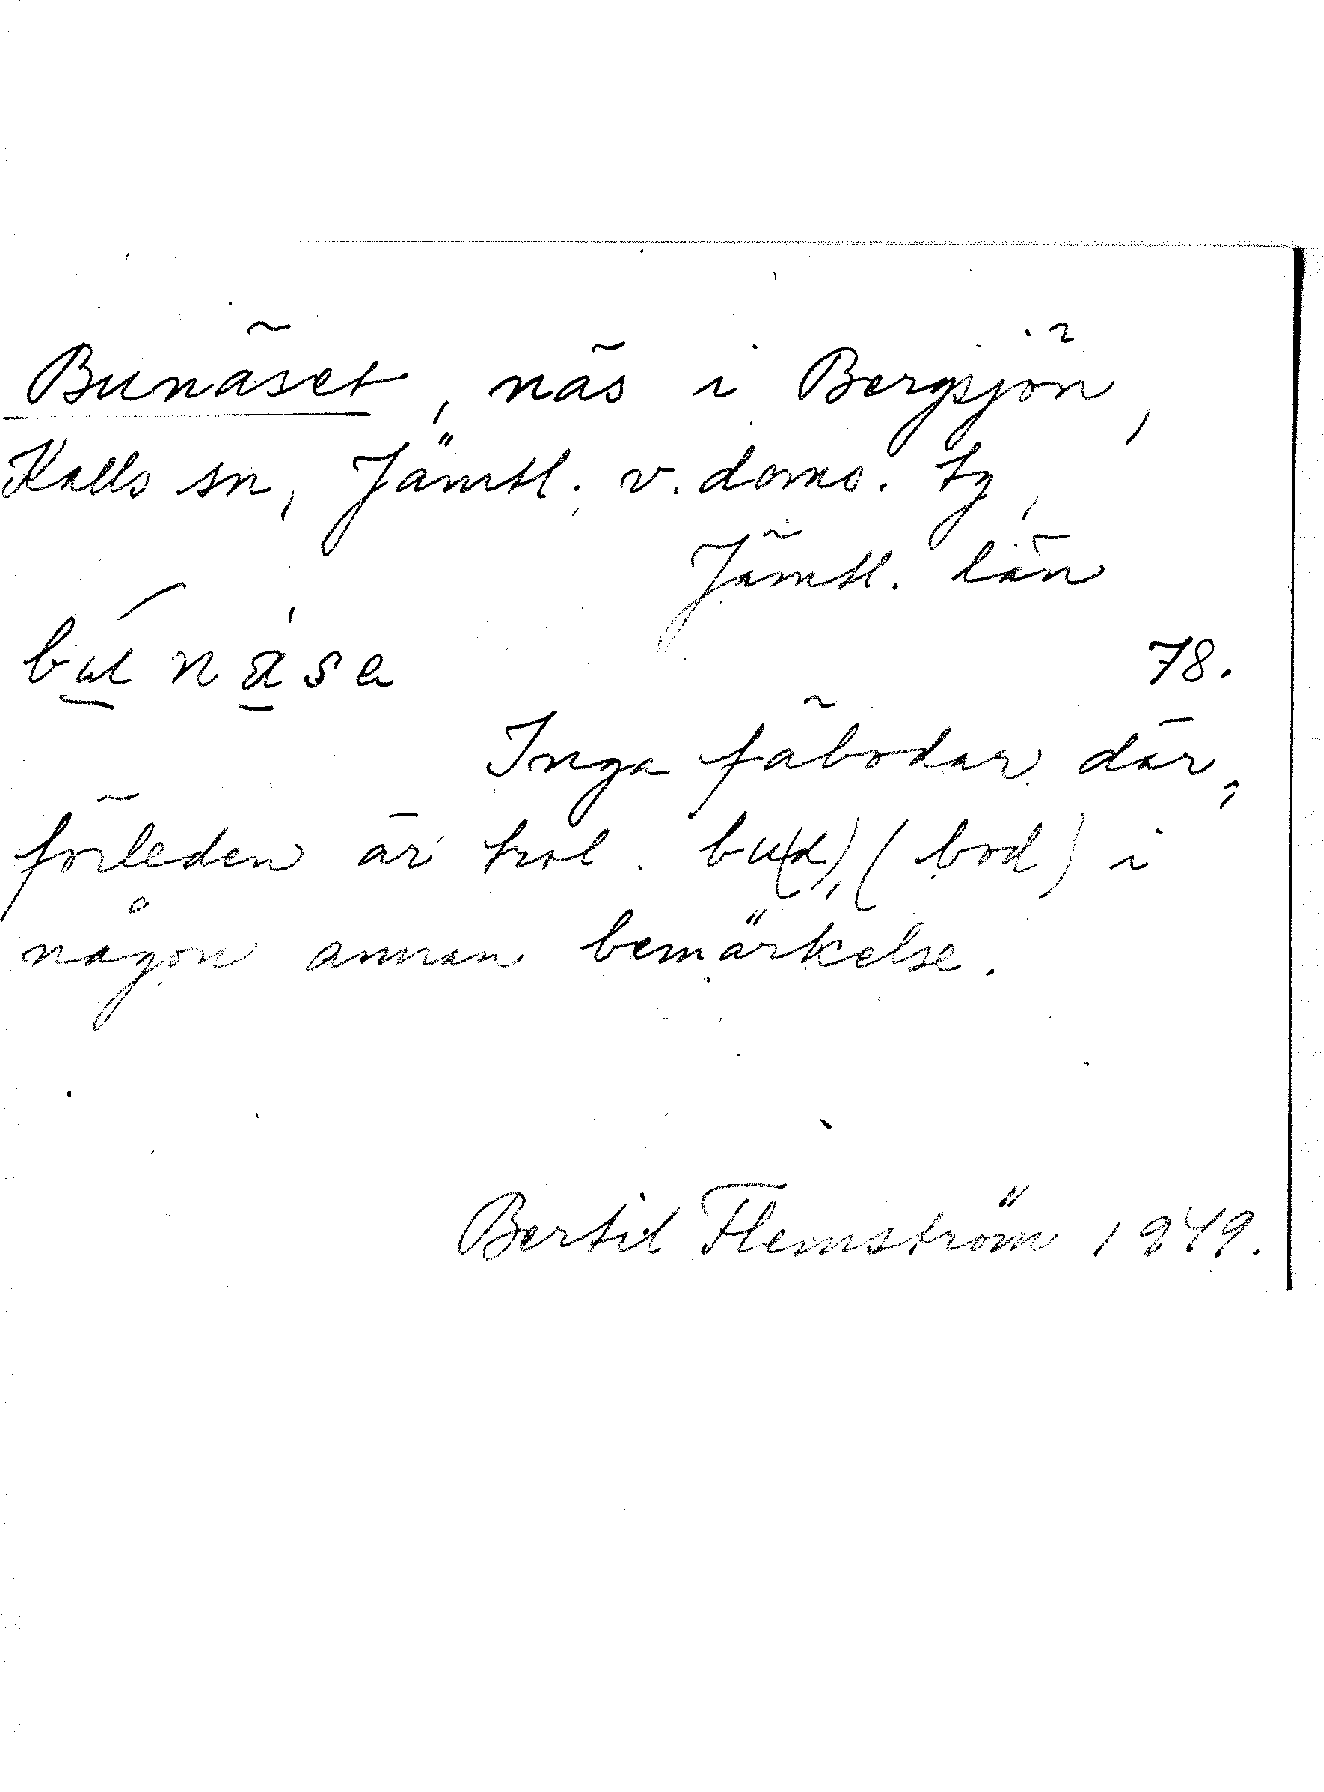 Bunäset, näs i Bergsjön,
Kalls sn, Jämtl. v. doms. tg,
Jämtl. län
78.
Inga fäbodar där,
förleden är trol. bu(d), (bod) i
någon annan bemärkelse.
Bertil Flemström 1949.